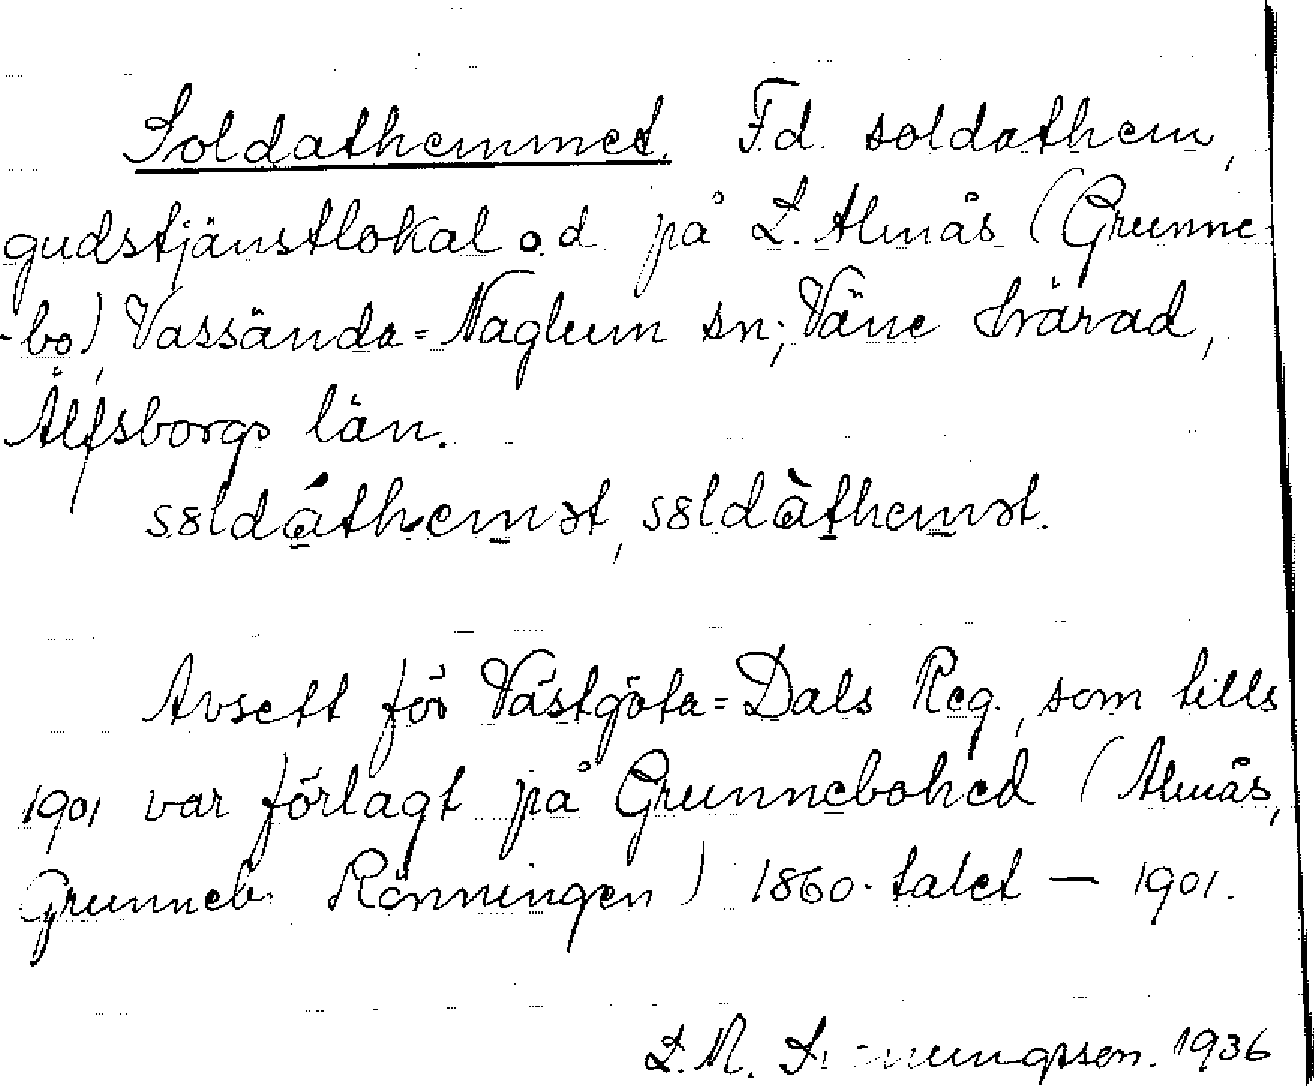 Soldathemmet. F.d. soldathem,
gudstjänstlokal o.d. på L. Almås (Grunne-
-bo), Vassända=Naglum sn; Väne härad,
Älfsborgs län.
s8ldáthemət, s8ldàthemət.
Avsett för Västgöta=Dals Reg., som tills
1901 var förlagt på Grunnebohed (Almås,
Grunneb. Rönningen) 1860-talet — 1901.
L. M. 1936